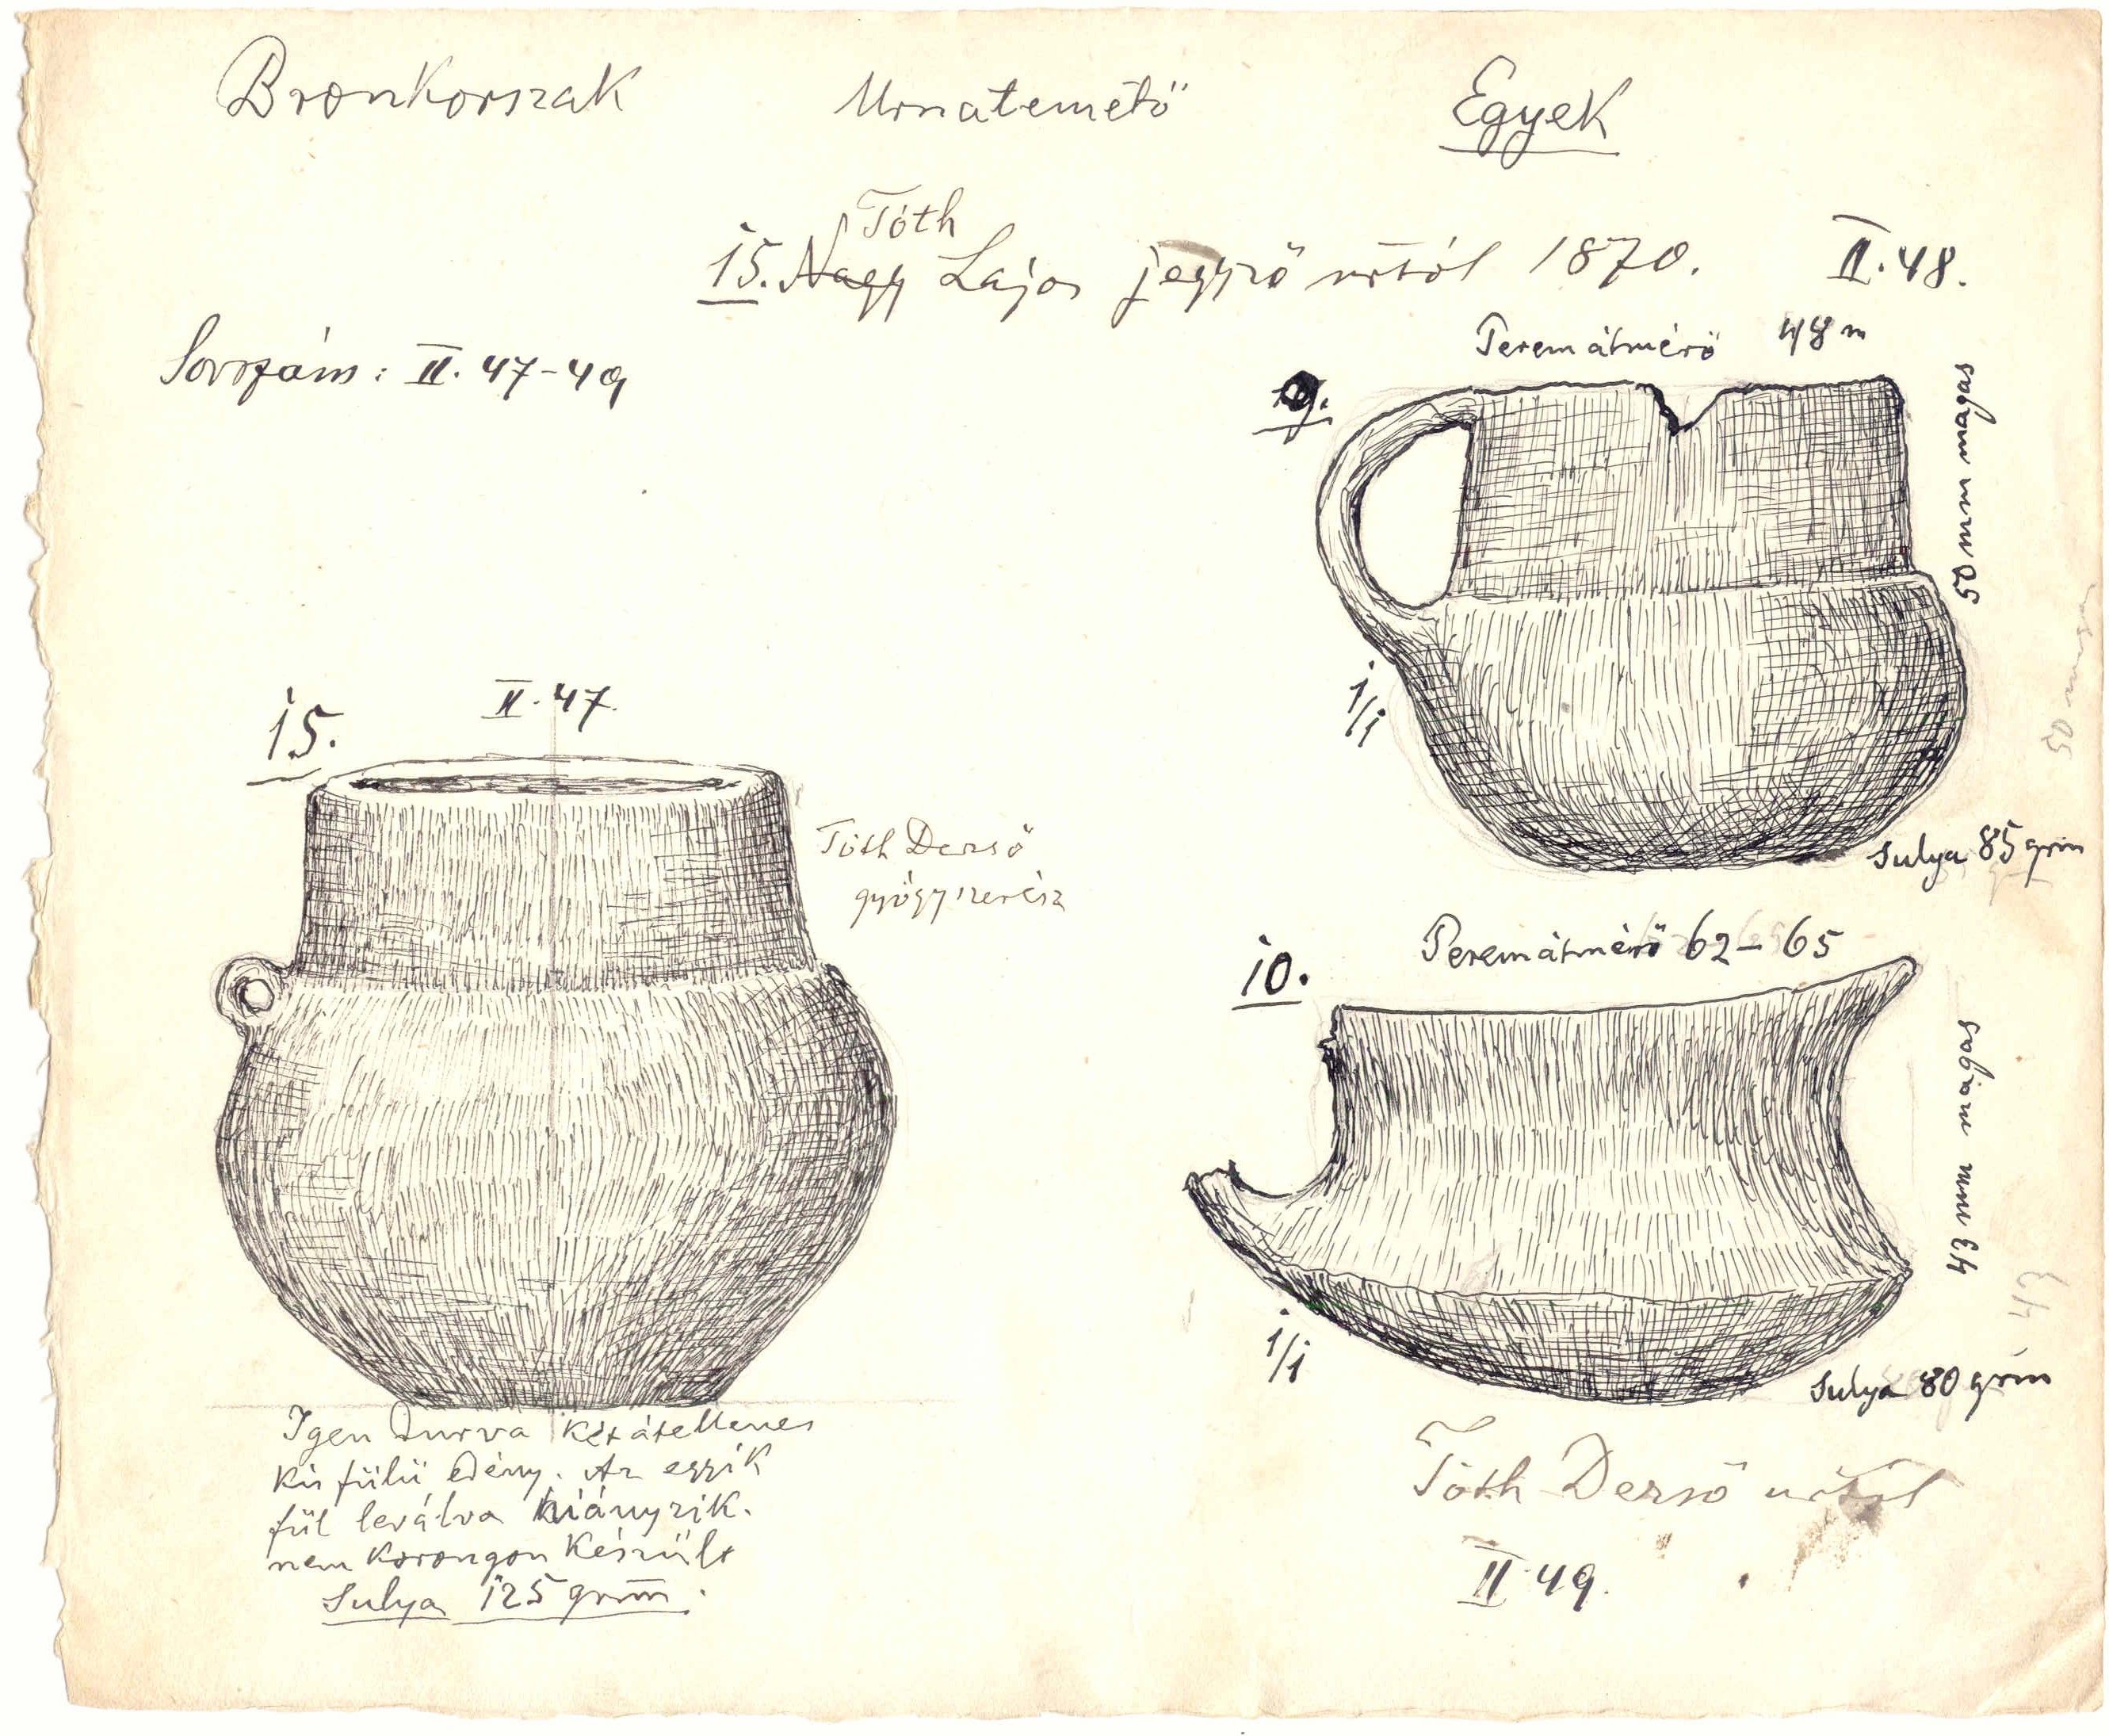 Bronkorszak Urnatemető Egyek
Tóth
15. Nagy Lajos jegyző úrtól 1870. II. 48.
Sorszám: II. 47-49
Peremátmérő 48 m
9.
50 mm magas
1/1
50 mm
Sulya 85 grm
15. II. 47.
Tóth Derső
gyógyszerész
Igen durva két átellenes
kis fülü edény. Az egyik
fül leválva hiányzik.
nem korongon készült
Sulya 125 grm.
10. Peremátmérő 62-65
43 mm magas
43
1/1
Sulya 80 grm
Tóth Derső úrtól
II 49.